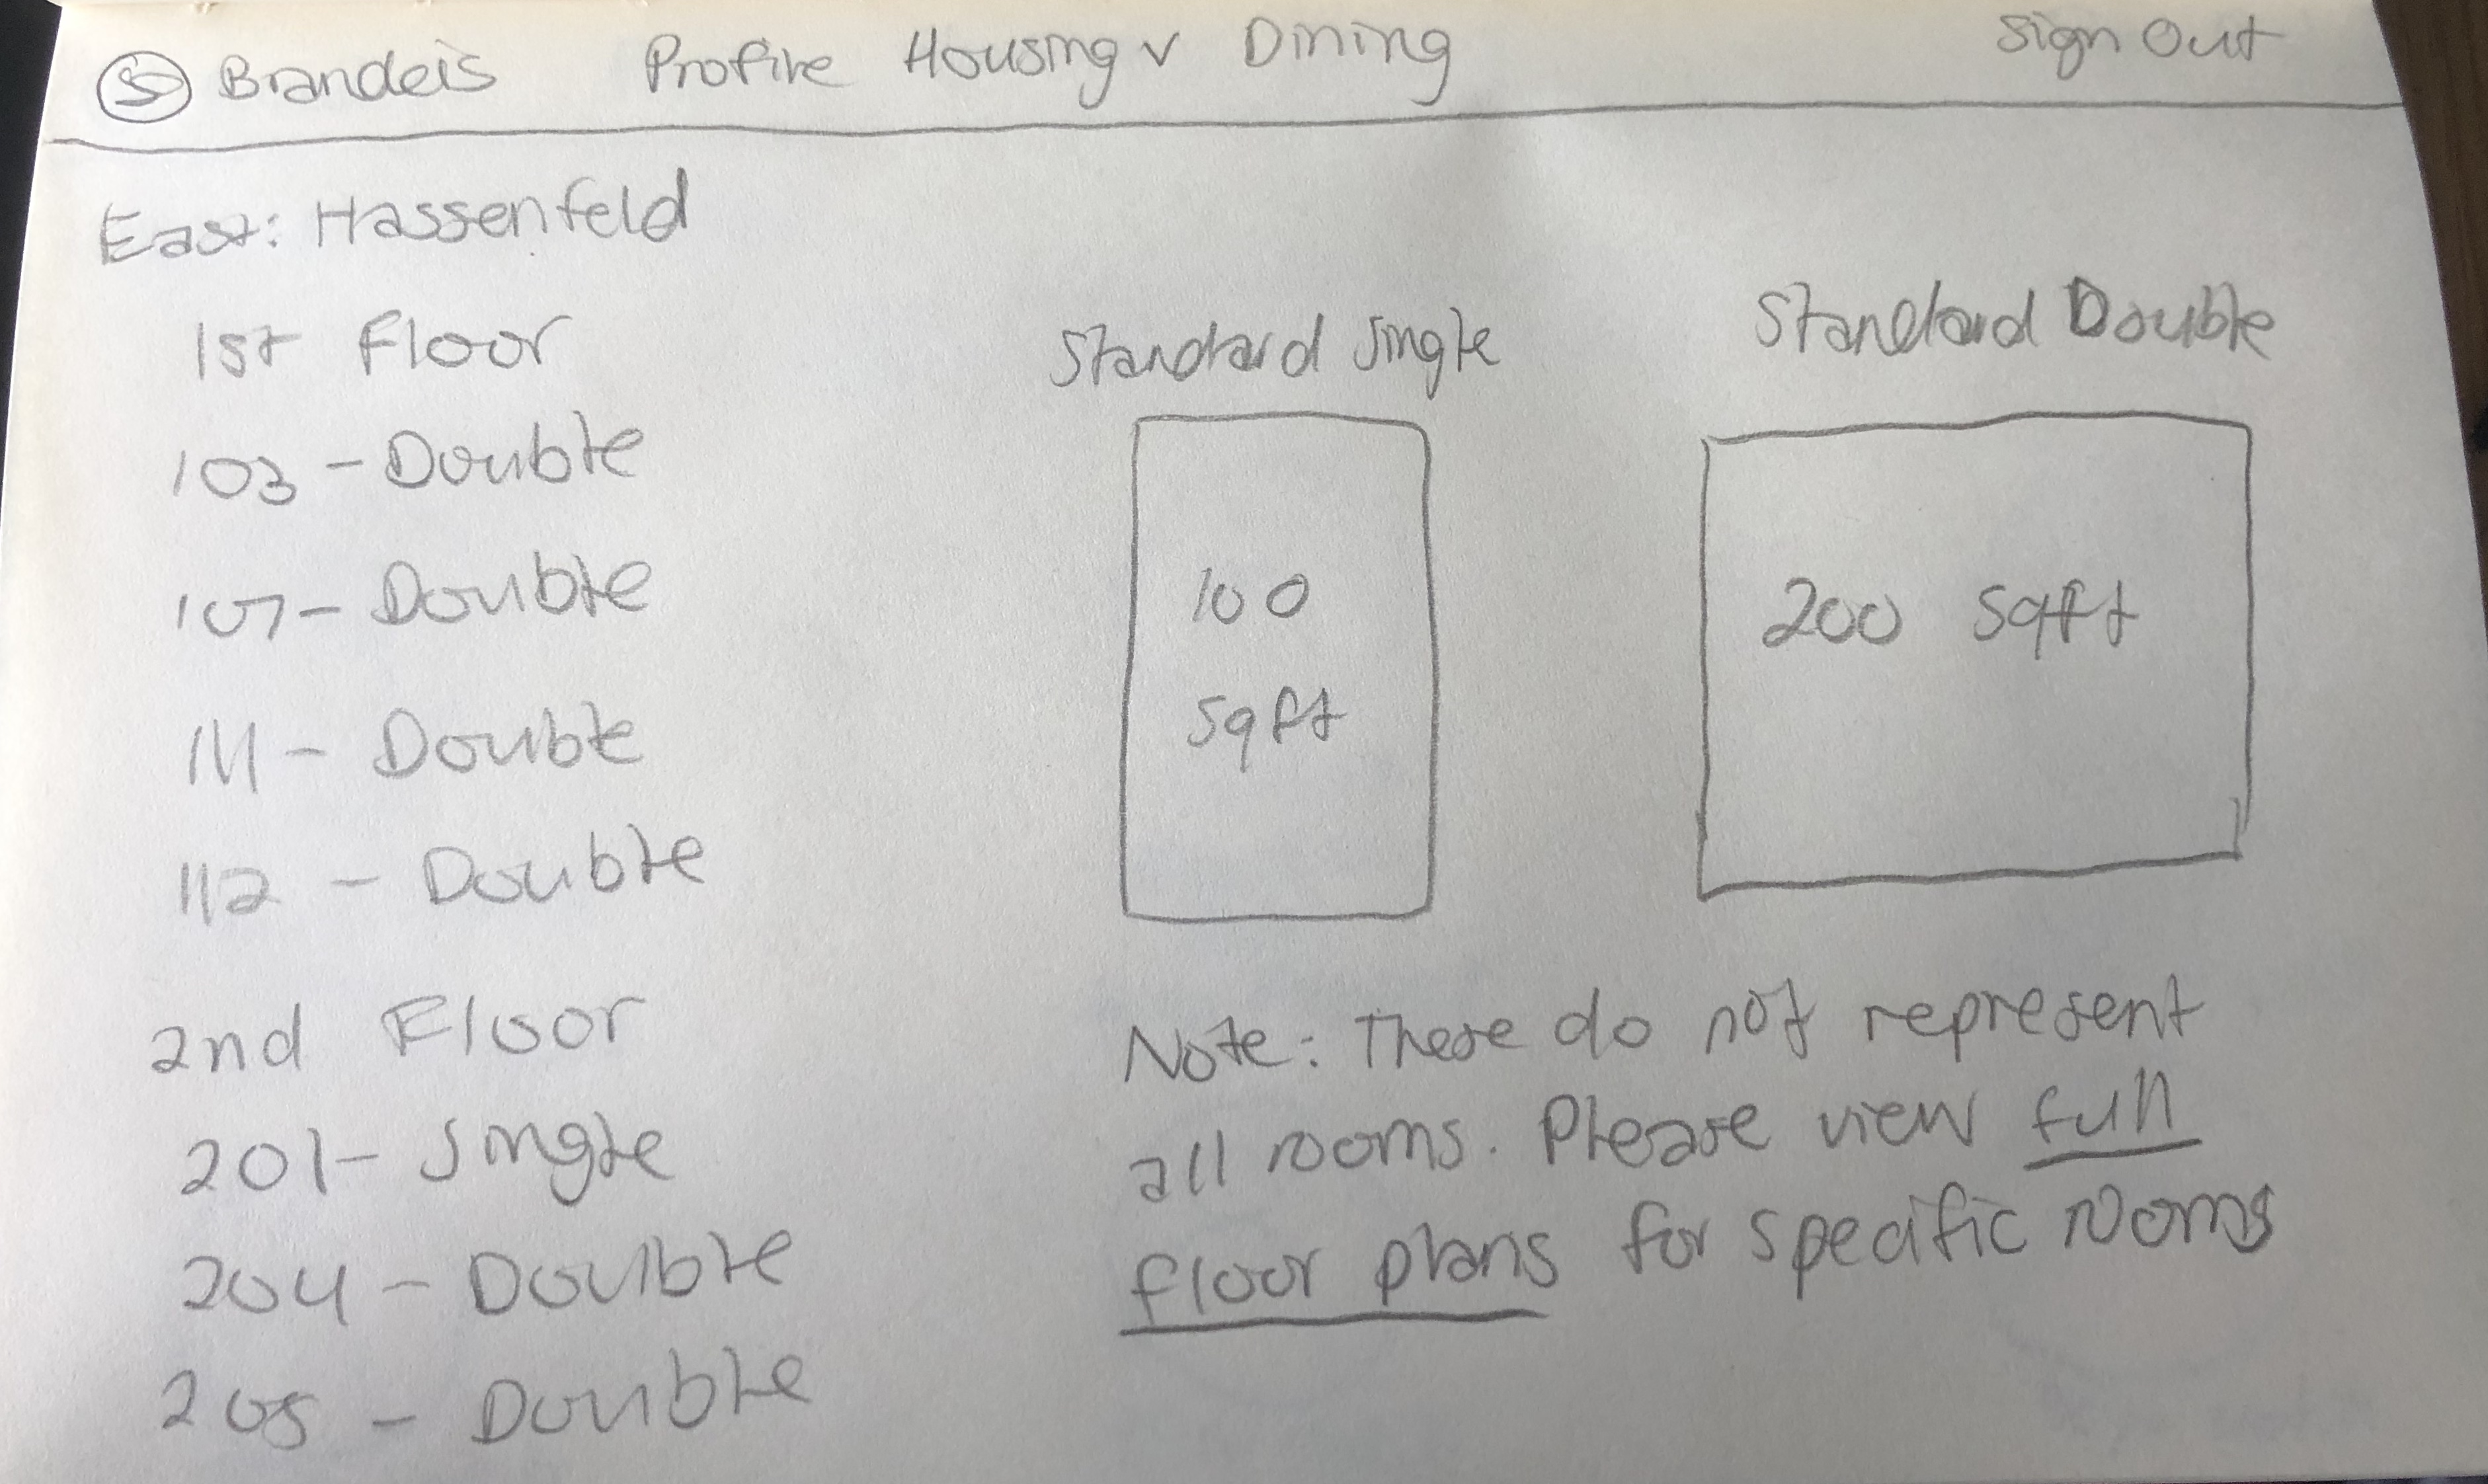 Brandeis Profile Housing v Dining Sign Out
East: Hassenfeld
1st Floor
103 - Double
107 - Double
111 - Double
112 - Double
2nd Floor
201 - Single
204 - Double
205 - Double
Standard Single
100
sqft
Standard Double
200 sqft
Note: These do not represent
all rooms. Please view full
floor plans for specific rooms